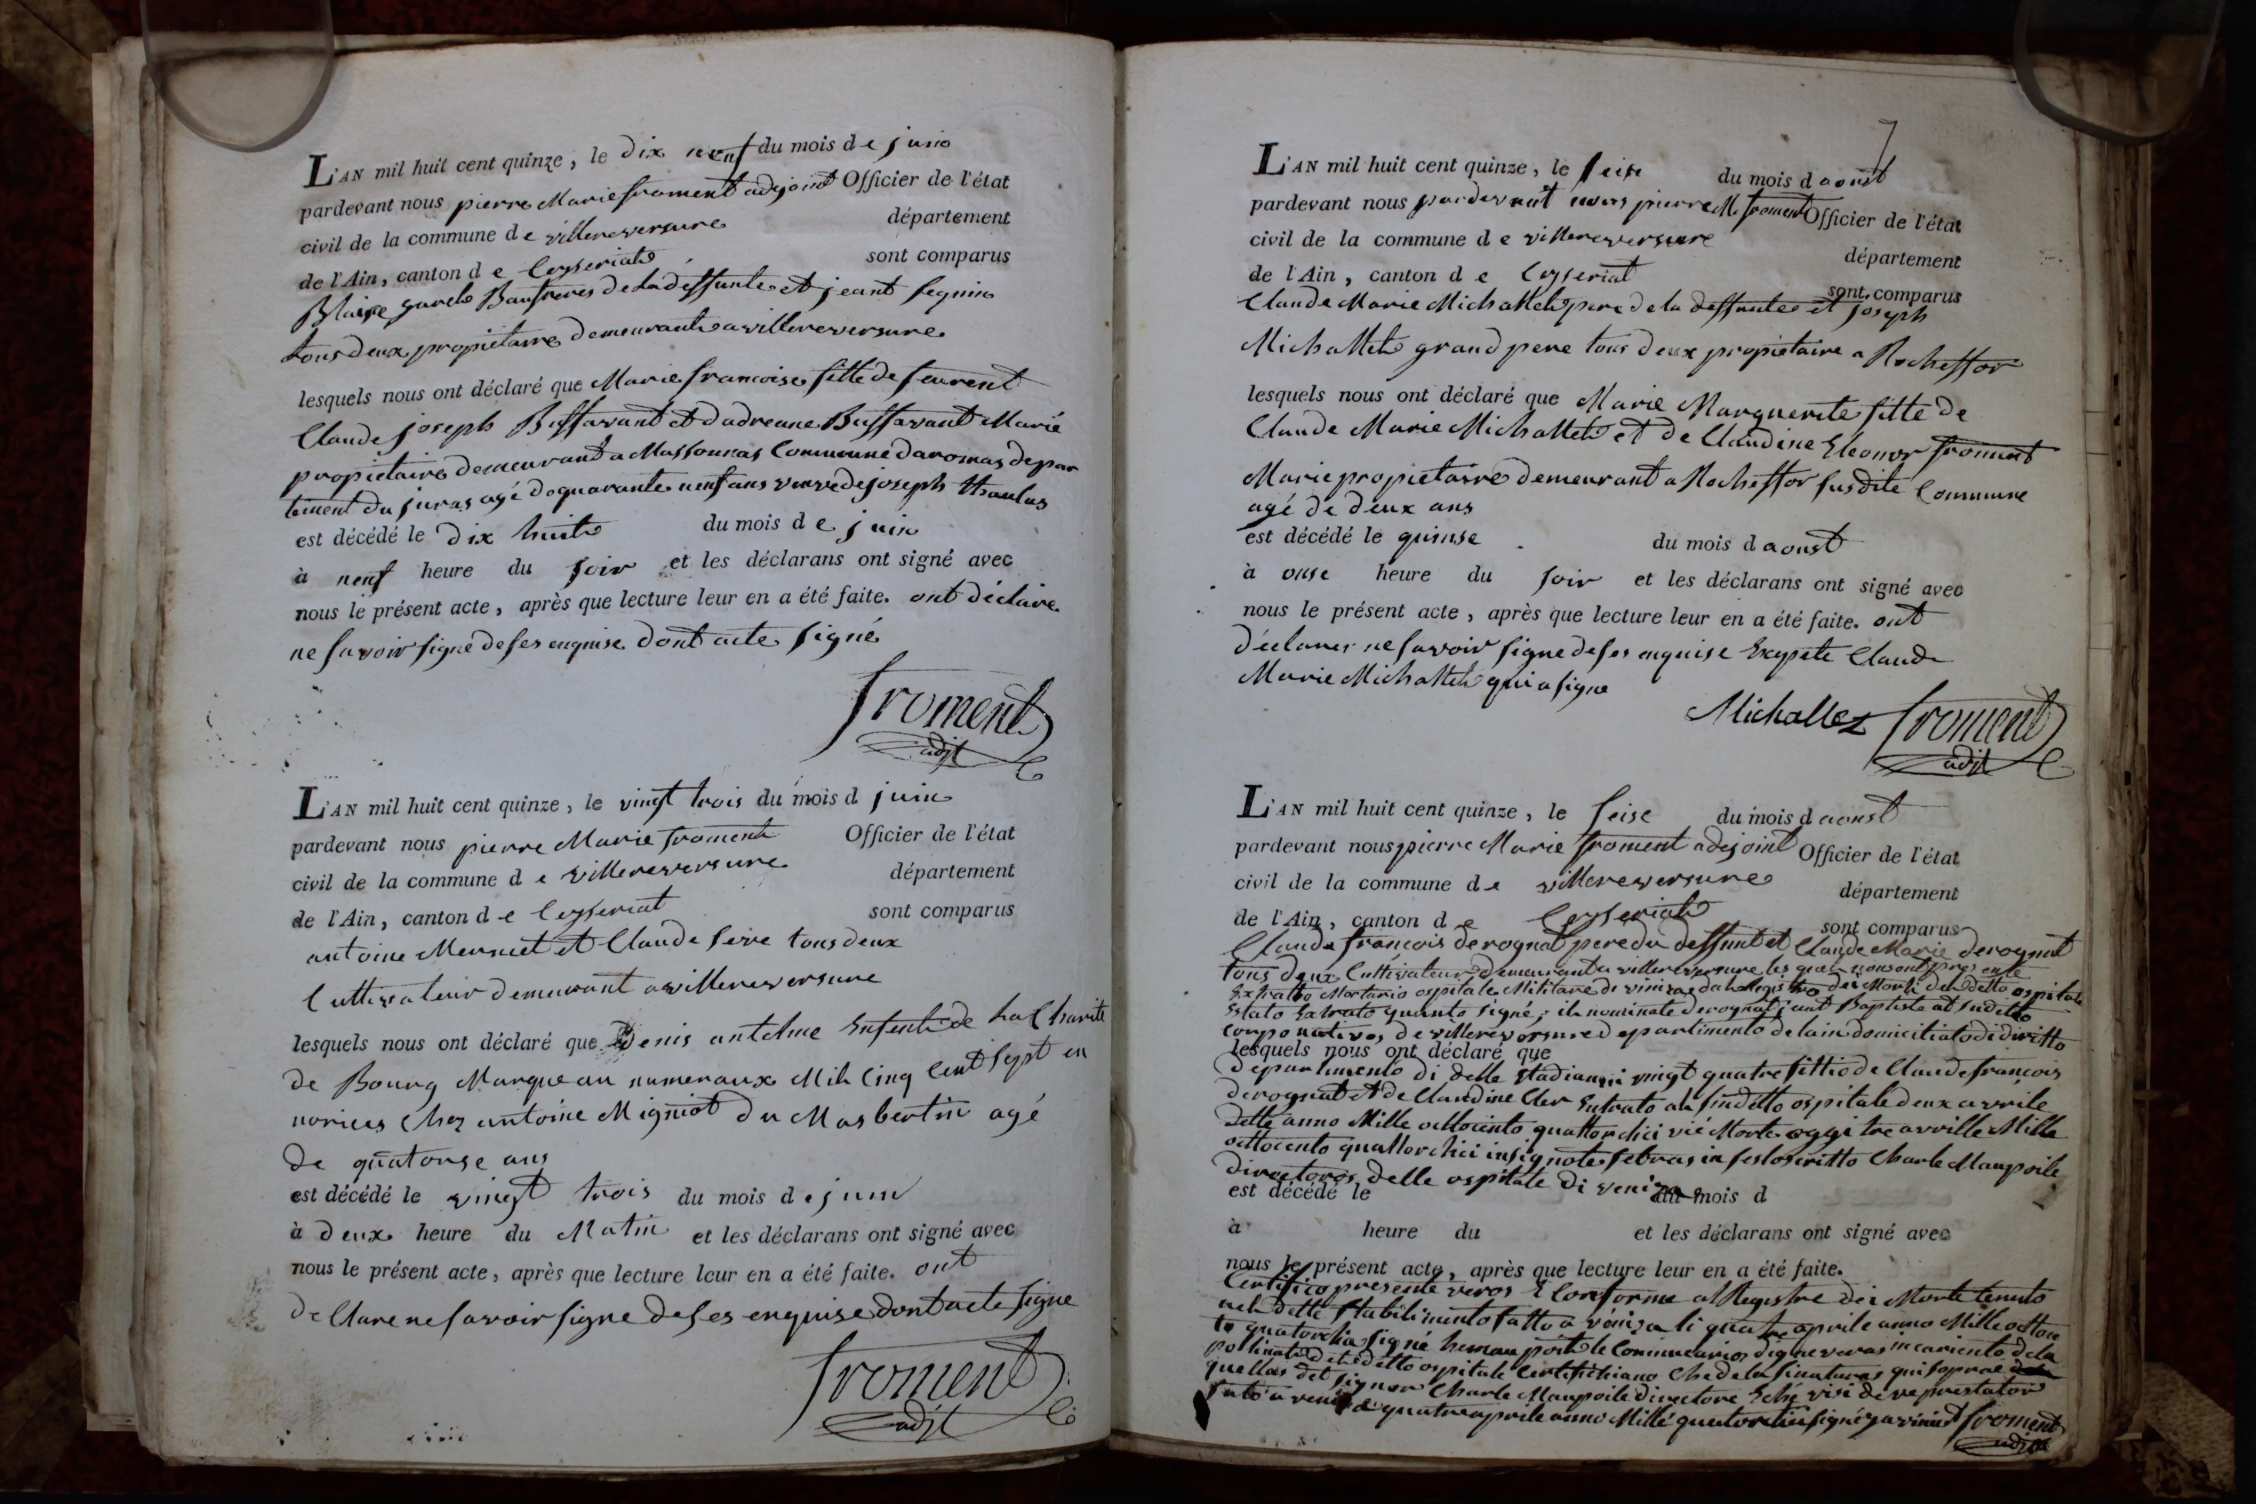 L'AN mil huit cent quinze, le dix neuf du mois de juin
pardevant nous pierre Marie froment adjoint Officier de l'état
civil de la commune de villereversure département
de l'Ain, canton de Ceyseriat sont comparus
Blaise gurel Baufreres de la deffunte et jeant seguin
tous deux propietaire demeurant a villereversure
lesquels nous ont déclaré que Marie francoise fille de feu
Claude joseph Buffavant et dadreane Buffavant Marié
propietaire demeurant a Massonnas Commune daromas depar
tement du juras agé de quarante neuf ans veuve de joseph
est décédé le dix huit du mois de juin
à neuf heure du soir et les déclarans ont signé avec
nous le présent acte, après que lecture leur en a été faite. ont déclaré
ne savoir signé de ses enquise dont acte signé
froment
adjt
L'AN mil huit cent quinze, le vingt trois du mois d juin
pardevant nous pierre Marie froment Officier de l'état
civil de la commune de villereversure département
de l'Ain, canton de Ceyseriat sont comparus
antoine Mernuet et Claude serre tous deux
Cultivateur demeurant a villereversure
lesquels nous ont déclaré que Denis antelme Enfent de la Charité
de Bourg Marque au numeraux Mil Cinq Cent Sept en
norices Chez antoine Migniot du Masbertin agé
de quatorse ans
est décédé le vingt trois du mois de juin
à deux heure du Matin et les déclarans ont signé avec
nous le présent acte, après que lecture leur en a été faite. ont
de Clare ne savoir signe de ses enquise dont acte signe
froment
adjt
7
L'AN mil huit cent quinze, le seise du mois d aoust
pardevant nous pardevant nous pierre M. froment Officier de l'état
civil de la commune de villereversure département
de l'Ain, canton de Ceyseriat sont comparus
Claude Marie Michallet pere de la deffunte et joseph
Michallet grand pere tous deux propietaire a Rocheffor
lesquels nous ont déclaré que Marie Marguerite fille de
Claude Marie Michallet et de Claudine Eleonor froment
Marie propietaire demeurant a Rocheffor susdite Commune
agé de deux ans
est décédé le quinse du mois d aoust
à onse heure du soir et les déclarans ont signé avec
nous le présent acte, après que lecture leur en a été faite. ont
déclarer ne savoir signe de ses enquise Exepete Claude
Marie Michallet qui a signe
Michallez froment
adjt
L'AN mil huit cent quinze, le seise du mois d aoust
pardevant nous pierre Marie froment adejoint Officier de l'état
civil de la commune de villereversure département
de l'Ain, canton de Ceyseriat sont comparus
Claude francois derognat pere du deffunt et Claude Marie derognat
tous deux Cultivateur demeurant a villereversure les quel nous ont presente
Extratto Mortario ospitale Militare di veniza da Registro dei Morti del detto ospitale
Estato Extrato quanto signé; il nominate derognat jeant Baptiste al sudetto
corpo nativos de villereversure departimento de lain domiciliato di diritto
lesquels nous ont déclaré que
departimento di delle vingt quatre fittio de Claude francois
derognat et de Claudine Cler Entrato al sudetto ospitale deux avrile
delle anno Mille ottocento quattordici vié Morte oggi tre avrille Mille
ottocento quattordici Charle Maupoile
directoros delle ospitale di veniza
est décédé le du mois d
à heure du et les déclarans ont signé avec
nous le présent acte, après que lecture leur en a été faite.
Certifico presente veros E Conforme al Registre dei Morte tenuto
nel dette stabilimento fatto a véniza li quatre aprile anno Mille otton
to quatorchia signé
detto ospitale Certifichiano Che de la sinaturas qui sopra
quellas del signor Charle Maupoile directore
fato a veniza quatre aprile anno Mille signé froment
adjt